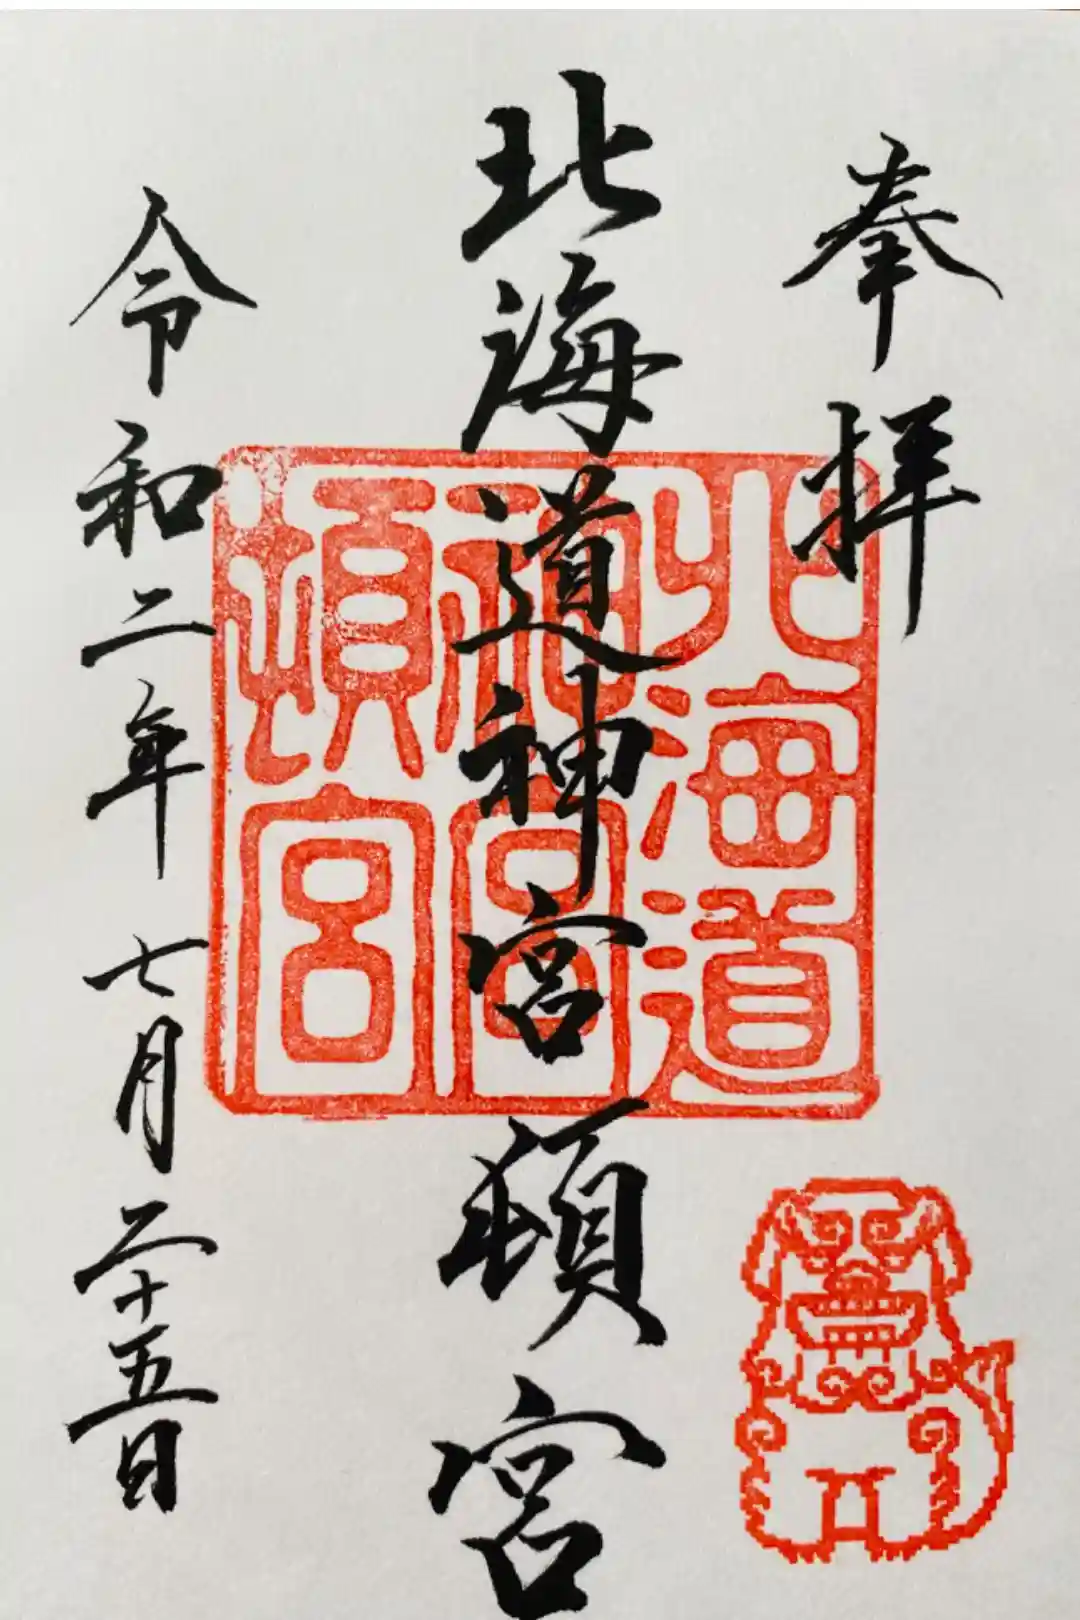 奉拝
北海道神宮頓宮
令和二年七月二十五日
北海道
神宮
頓宮